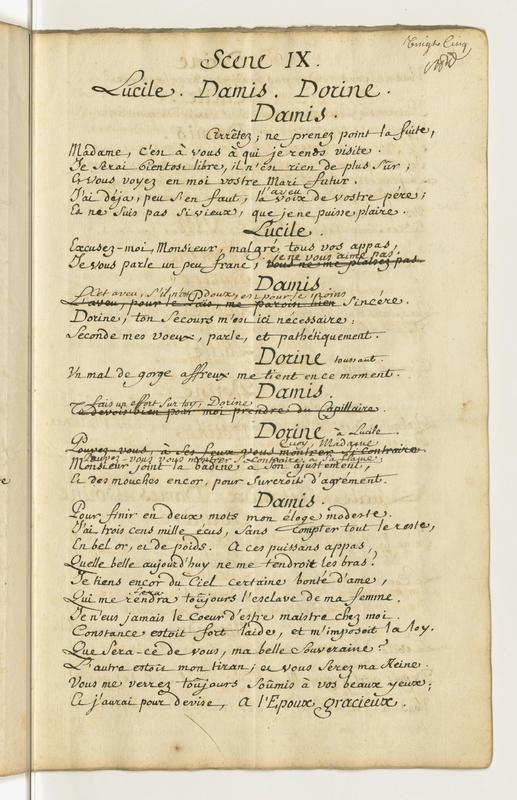 Vingt Cinq
Scene IX.
Lucile. Damis. Dorine.
Damis.
Arrêtez; ne prenez point la fuite,
Madame, c'en à vous à qui je rends visite.
Je serai bientost libre, il n'en rien de plus sûr;
Et vous voyez en moi vostre Mari futur.
l'aveu
J'ai déja, peu s'en faut, la voix de vostre pére;
Et ne suis pas si vieux, que je ne puisse plaire.
Lucile.
Excusez-moi, Monsieur, malgré tous vos appas,
je ne vous aime pas
Je vous parle un peu franc; vous ne me plaisez pas.
Damis
Cet aveu, s'il n'en doux, est pour le moins
L'aveu, pour le sincére.
Dorine; ton secours m'en ici nécessaire:
Seconde mes voeux, parle, et pathétiquement.
Dorine toussant.
Un mal de gorge affreux me tient en ce moment.
Damis.
Fais un effort sur toy, Dorine
Tu devois bien pour moi prendre du Capillaire.
Dorine à Lucile
Quoy, Madame
Pouvez-vous, à ses feux vous montrer si contraire.
Pouvez-vous vous montrer si contraire à sa flame;
Monsieur joint la badine à son ajustement,
Et des mouches encor, pour surcroît d'agrément.
Damis.
Pour finir en deux mots mon éloge modeste.
J'ai trois cens mille écus, sans compter tout le reste,
En bel or, et de poids. A ces puissans appas,
Quelle belle aujourd'huy ne me tendroit les bras?
Je tiens encor du Ciel certaine bonté d'ame,
fera
Qui me rendra toûjours l'esclave de ma femme.
Je n'eus jamais le coeur d'estre maistre chez moi.
Constance estoit fort laide, et m'imposoit la loy.
Que sera-ce de vous, ma belle souveraine?
L'autre estoit mon tiran; et vous serez ma Reine.
Vous me verrez toûjours soûmis à vos beaux yeux;
Et j'aurai pour devise, A l'Epoux gracieux.